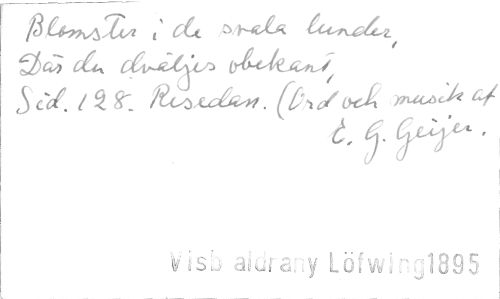 Blomster i de svala lunder,
Där du dväljes obekant,
Sid. 128. Resedan. (Ord och musik af
E. G. Geijer.
Visb aldrany Löfwing1895